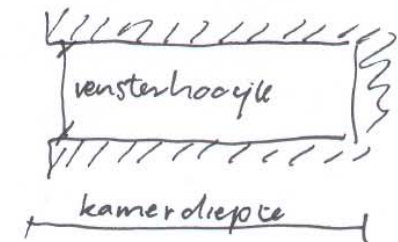 vensterhoogte
kamerdiepte